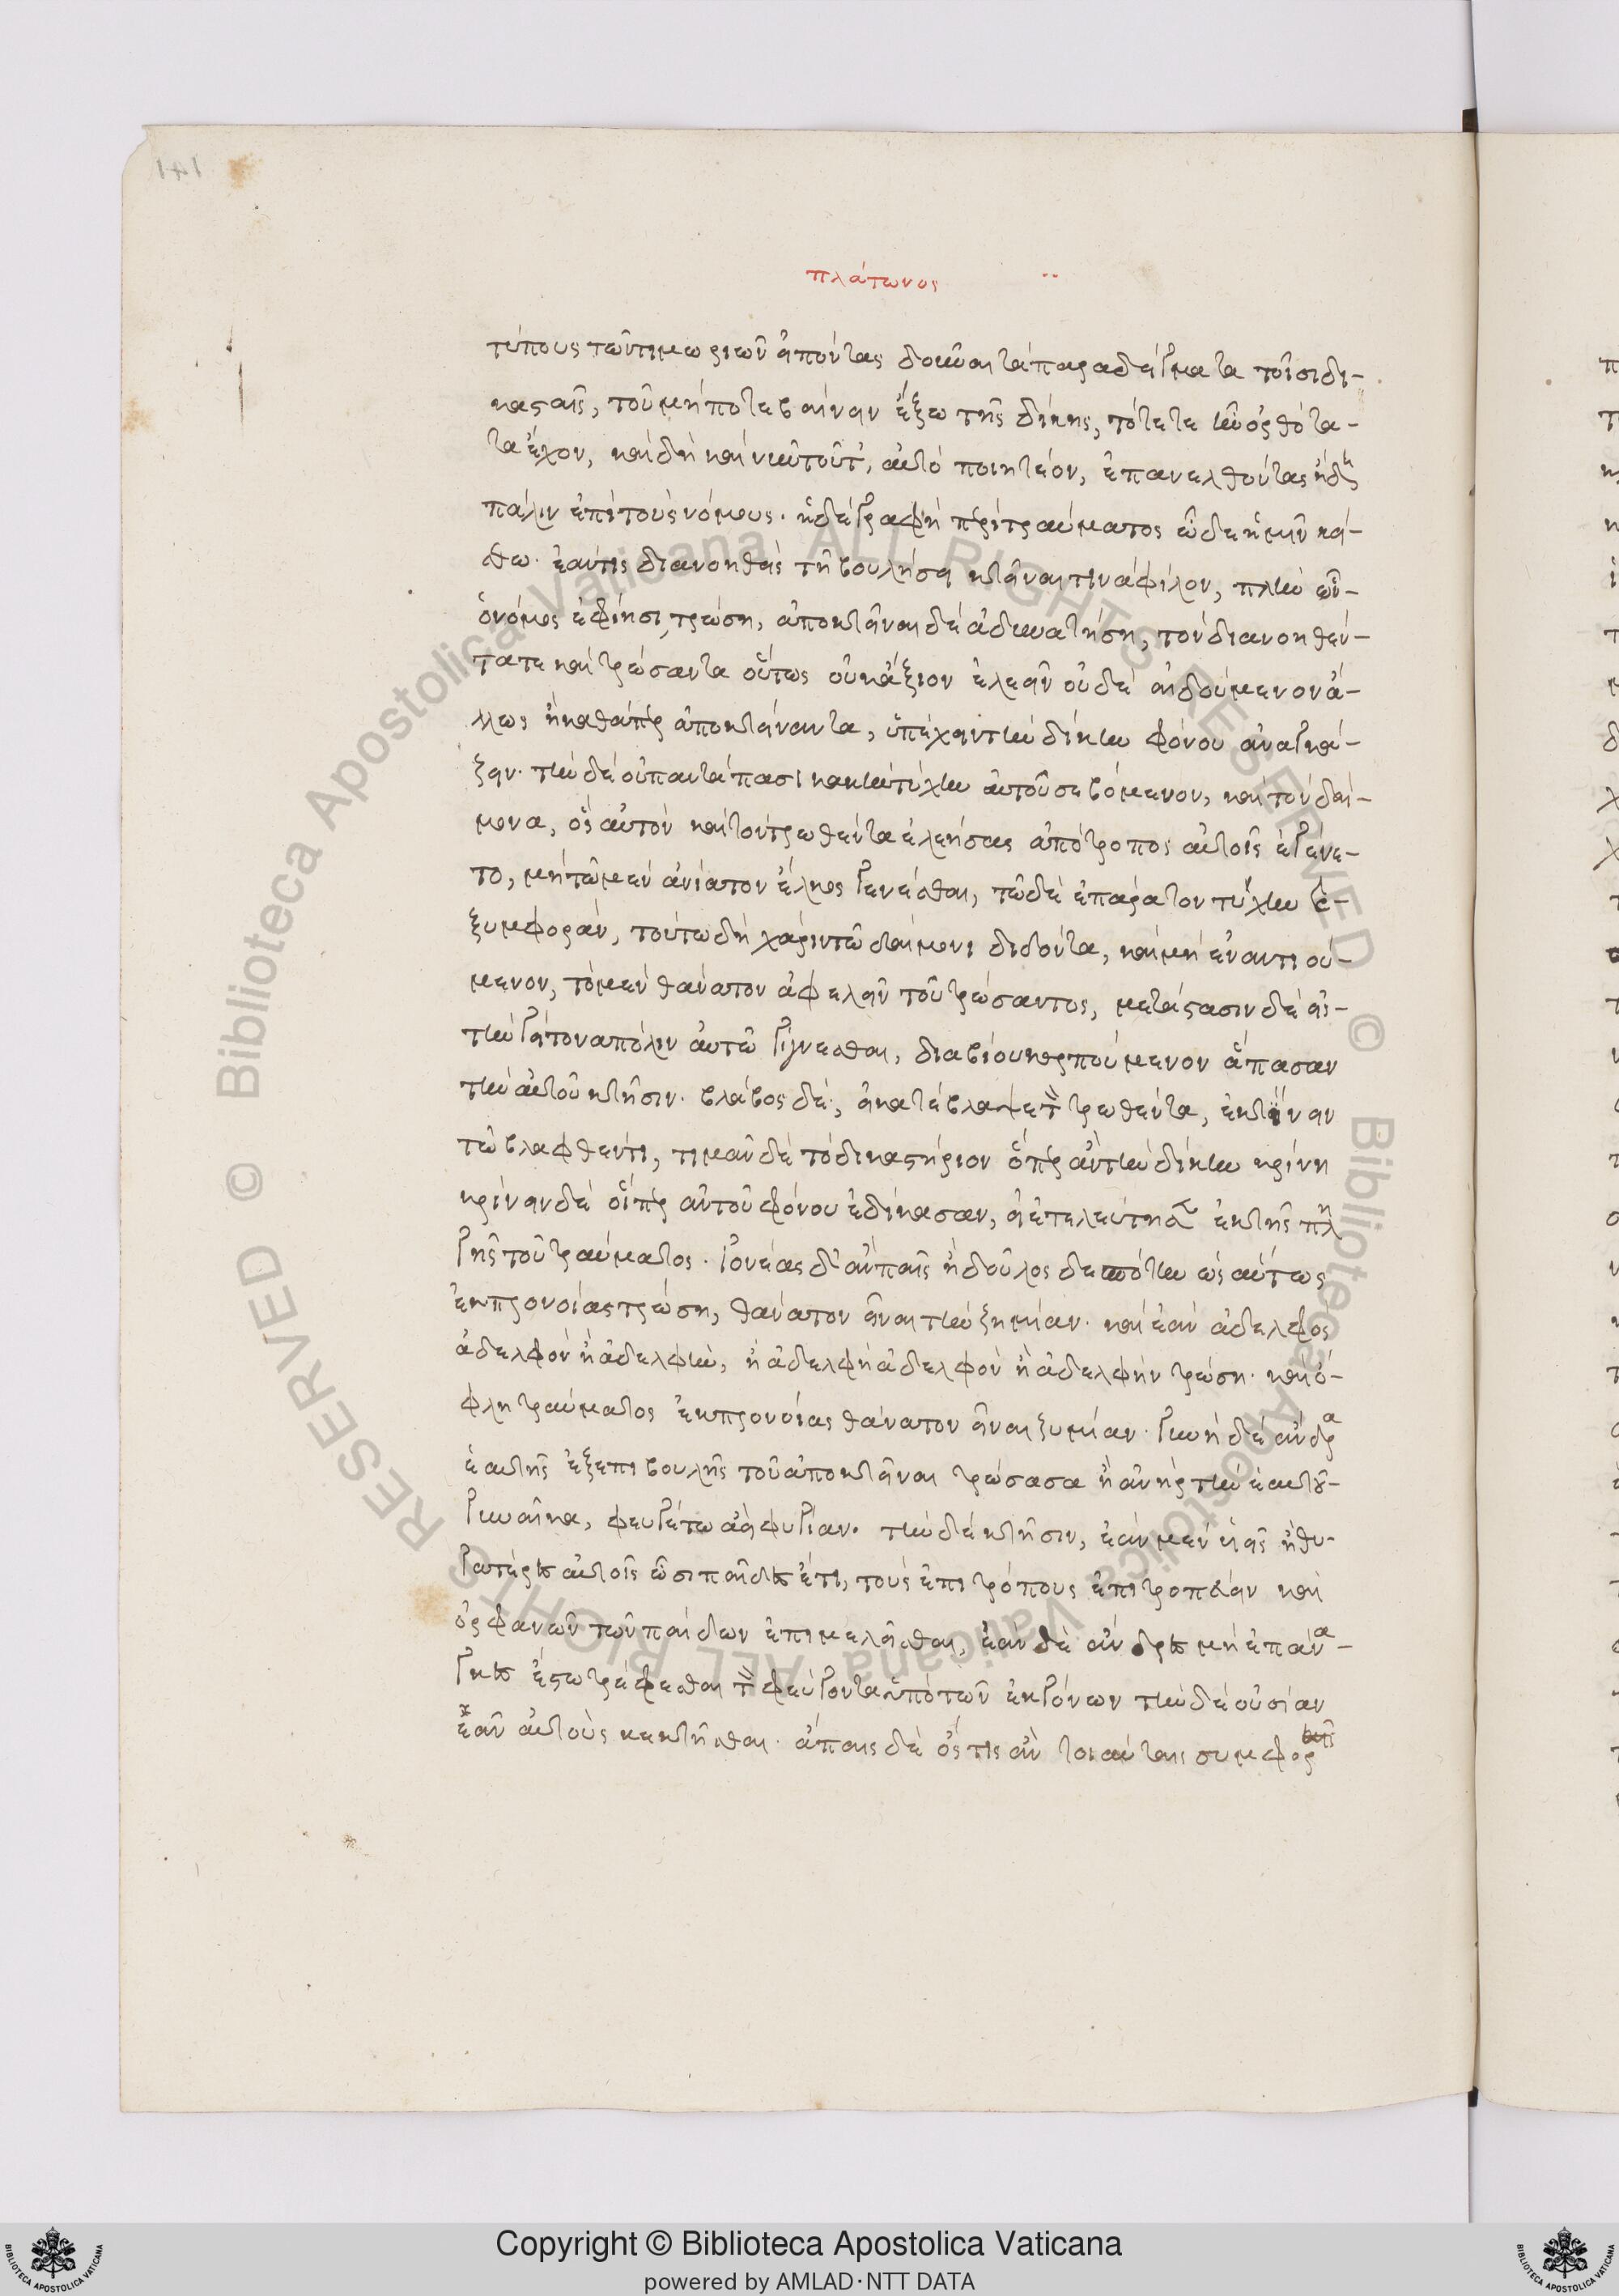 πλάτωνος
τύπους τῶν τιμωριῶν εἰπόντας δοῦναι τὰ παραδείγματα τοῖσι δι-
κασταῖς, τοῦ μήποτε βαίνειν ἔξω τῆς δίκης, τότε τε ἦν ὀρθότα-
τα ἔχον, καὶ δὴ καὶ νῦν τοῦτ' αὐτὸ ποιητέον, ἐπανελθόντας ἤδη
πάλιν ἐπὶ τοὺς νόμους. ἡ δὲ γραφὴ περὶ τραύματος ὧδε ἡμῖν κεί-
σθω. ἐάν τις διανοηθεὶς τῇ βουλήσει κτεῖναι τινὰ φίλον, πλὴν ὧν
ὁ νόμος ἐφίησι, τρώσῃ, ἀποκτεῖναι δὲ ἀδυνατήσῃ, τὸν διανοηθέν-
τα τε καὶ τρώσαντα οὕτως οὐκ ἄξιον ἐλεεῖν οὐδὲ αἰδούμενον ἄ-
λλως ἢ καθάπερ ἀποκτείναντα, ὑπέχειν τὴν δίκην φόνου ἀναγκά-
ζειν. τὴν δὲ οὐ παντάπασι κακὴν τύχην αὐτοῦ σεβόμενον, καὶ τὸν δαί-
μονα, ὃς αὐτὸν καὶ τὸν τρωθέντα ἐλεήσας ἀπότροπος αὐτοῖς ἐγένε-
το, μὴ τῷ μὲν ἀνίατον ἕλκος γενέσθαι, τῷ δὲ ἐπάρατον τύχην καὶ
ξυμφοράν, τούτῳ δὴ χάριν τῷ δαίμονι διδόντα, καὶ μὴ ἐναντιού-
μενον, τὸ μὲν θάνατον ἀφελεῖν τοῦ τρώσαντος, μετάστασιν δὲ εἰς
τὴν γείτονα πόλιν αὐτῷ γίγνεσθαι, διὰ βίου καρπούμενον ἅπασαν
τὴν αὐτοῦ κτῆσιν. βλάβος δέ, εἰ κατέβλαψε τὸν τρωθέντα, ἐκτίνειν
τῷ βλαφθέντι, τιμᾶν δὲ τὸ δικαστήριον ὅπερ ἂν τὴν δίκην κρίνῃ
κρίνειν δὲ οἵπερ ἂν τοῦ φόνου ἐδίκασαν, εἰ ἐτελεύτησεν ἐκ τῆς πλη
γῆς τοῦ τραύματος. γονέας δ' ἂν παῖς ἢ δοῦλος δεσπότην ὡσαύτως
ἐκ προνοίας τρώσῃ, θάνατον εἶναι τὴν ζημίαν. καὶ ἐὰν ἀδελφὸς
ἀδελφὸν ἢ ἀδελφὴν, ἢ ἀδελφὴ ἀδελφὸν ἢ ἀδελφὴν τρώσῃ. καὶ ὄ-
φλῃ τραύματος ἐκ προνοίας θάνατον εἶναι ζυμίαν. γυνὴ δὲ ἄνδρα
ἑαυτῆς ἐξ ἐπιβουλῆς τοῦ ἀποκτεῖναι τρώσασα ἢ ἀνὴρ τὴν ἑαυτοῦ
γυναῖκα, φευγέτω ἀειφυγίαν. τὴν δὲ κτῆσιν, ἐὰν μὲν υἱεῖς ἢ θυ-
γατέρες αὐτοῖς ὦσι παῖδες ἔτι, τοὺς ἐπιτρόπους ἐπιτροπεύειν καὶ
ὀρφανῶν τῶν παίδων ἐπιμελεῖσθαι, ἐὰν δὲ ἄνδρες μὴ ἐπάνα-
γκες ἔστω τρέφεσθαι τὸν φεύγοντα ὑπὸ τῶν ἐκγόνων τὴν δὲ οὐσίαν
ἐᾶν αὐτοὺς κεκτῆσθαι. ἄπαις δὲ ὅστις ἂν τοιαύταις συμφορ